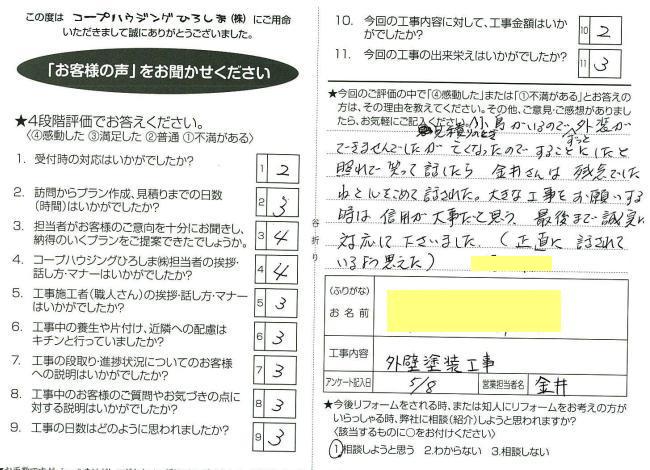 この度は コープハウジングひろしま(株) にご用命
いただきまして誠にありがとうございました。
「お客様の声」をお聞かせください
★4段階評価でお答えください。
〈④感動した ③満足した ②普通 ①不満がある〉
1. 受付時の対応はいかがでしたか? 1 2
2. 訪問からプラン作成、見積りまでの日数
(時間)はいかがでしたか? 2 3
3. 担当者がお客様のご意向を十分にお聞きし、
納得のいくプランをご提案できたでしょうか。 3 4
4. コープハウジングひろしま㈱担当者の挨拶・
話し方・マナーはいかがでしたか? 4 4
5. 工事施工者(職人さん)の挨拶・話し方・マナー
はいかがでしたか? 5 3
6. 工事中の養生や片付け、近隣への配慮は
キチンと行っていましたか? 6 3
7. 工事の段取り・進捗状況についてのお客様
への説明はいかがでしたか? 7 3
8. 工事中のお客様のご質問やお気づきの点に
対する説明はいかがでしたか? 8 3
9. 工事の日数はどのように思われましたか? 9 3
谷折り
10. 今回の工事内容に対して、工事金額はいか
がでしたか? 10 2
11. 今回の工事の出来栄えはいかがでしたか? 11 3
★今回のご評価の中で「④感動した」または「①不満がある」とお答え
の方は、その理由を教えてください。その他、ご意見・ご感想がありまし
たら、お気軽にご記入ください。小鳥がいるので ずっと 外装が
見積りのとき
できませんでしたが 亡くなったので することにしたと
照れて笑って話したら 金井さんは 残念でした
ねと心をこめて話された。大きな工事をお願いする
時は 信用が大事だと思う 最後まで誠実に
対応して下さいました (正直に 話されて
いるよう思えた)
(ふりがな)
お名前
工事内容 外壁塗装工事
アンケート記入日 5/8 営業担当者名 金井
★今後リフォームをされる時、または知人にリフォームをお考えの方が
いらっしゃる時、弊社に相談(紹介)しようと思いますか?
〈該当するものに○をお付けください〉
1.相談しようと思う 2.わからない 3.相談しない